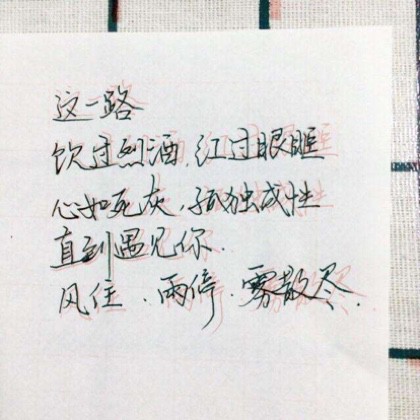 这一路
饮过烈酒,红过眼眶
心如死灰,孤独成性
直到遇见你.
风住.雨停.雾散尽.